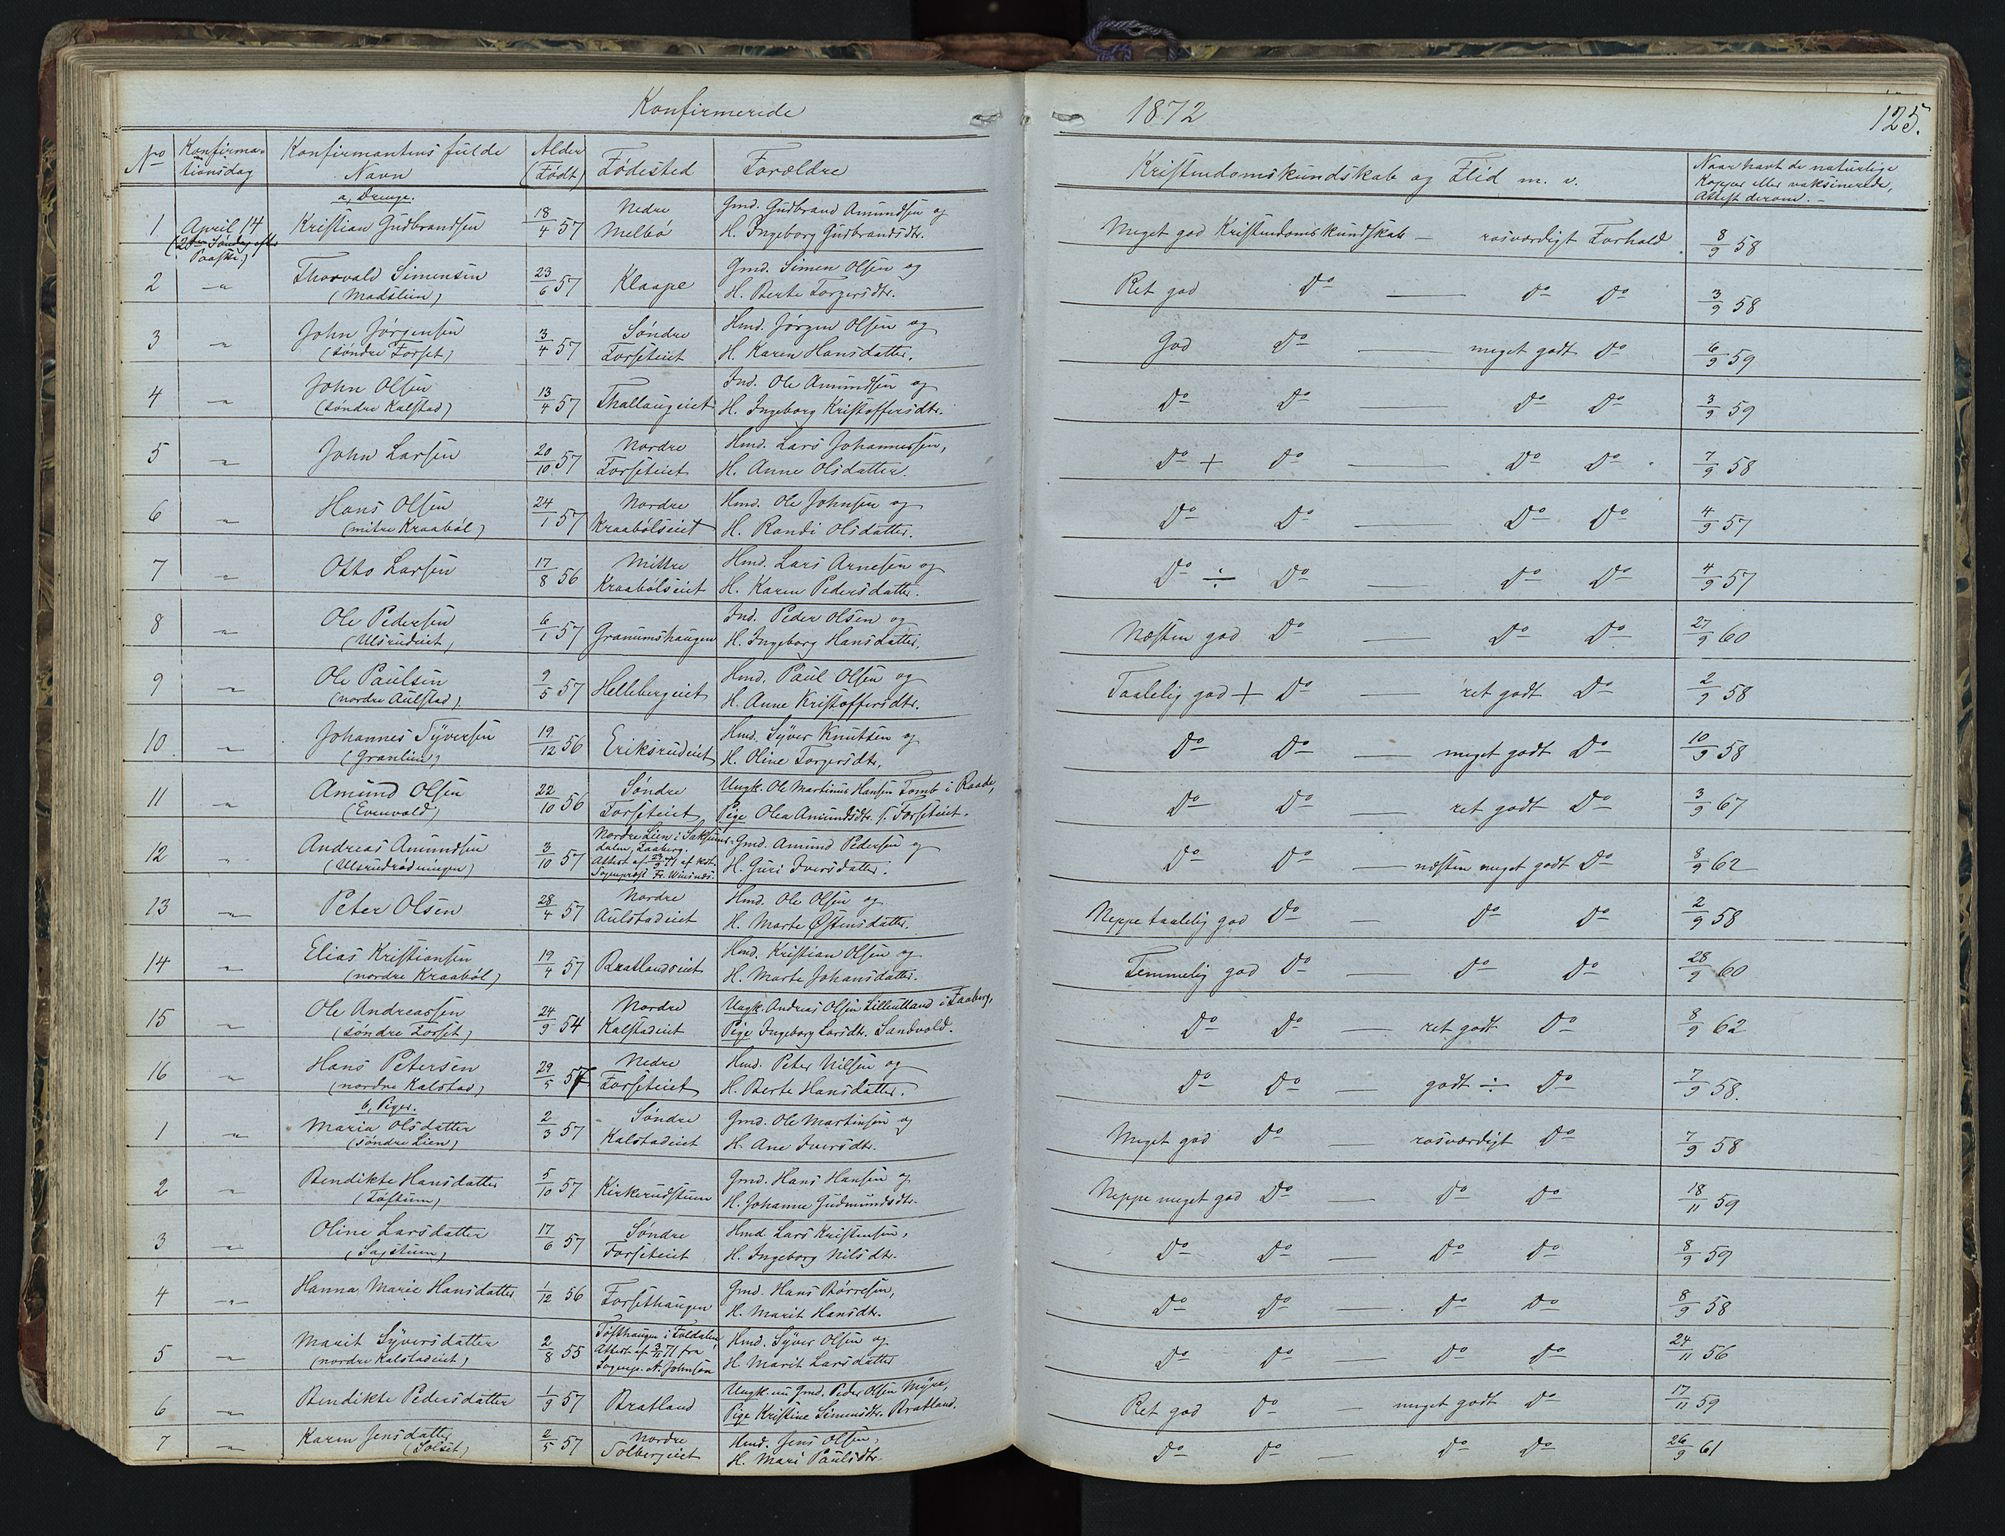 Konfirmerede 1872 125.
No Konfirma-tionsdag Konfirmantens fulde Navn Alder (Født) Fødested Forældre Kristendomskundskab og Flid m. v. Naar havt de naturlige Kopper eller vaksinerede, Attest derom. —
a, Drenge.
1 April 14 (2den Søndag efter Paaske.) Kristian Gudbrandsen 18/4 57 Nedre Melbø Gmd. Gudbrand Amundsen og H. Ingeborg Gudbrandsdtr. Meget god Kristendomskundskab — rosværdigt Forhold. 8/9 58
2 -"- Thorvald Simensen (Madslien) 23/6 57 Klaape Gmd. Simen Olsen og H. Berte Torgersdtr. Ret god Do — Do Do 3/9 58
3 -"- John Jørgensen (søndre Forset) 3/4 57 Søndre Forseteiet Hmd. Jørgen Olsen og H. Karen Hansdatter. God Do — meget godt Do 6/9 59
4 -"- John Olsen (søndre Kalstad) 13/4 57 Thallaugeiet Ind. Ole Amundsen og H. Ingeborg Kristoffersdtr. Do Do — Do Do 3/9 59
5 -"- John Larsen 20/10 57 Nordre Forseteiet Hmd. Lars Johannessen, H. Anne Olsdatter. Do + Do — Do Do 7/9 58
6 -"- Hans Olsen (mitre Kraabøl) 24/1 57 Nordre Kraabølseiet Hmd. Ole Johnsen og H. Randi Olsdatter. Do Do — Do Do 4/9 57
7 -"- Otto Larsen 17/8 56 Mittre Kraabølseiet Hmd. Lars Arnesen og H. Karen Pedersdatter. Do ÷ Do — Do Do 4/9 57
8 -"- Ole Pedersen (Ulsrudeiet) 6/1 57 Granumshaugen Ind. Peder Olsen og H. Ingeborg Hansdatter. Næsten god Do — Do Do 27/9 60
9 -"- Ole Paulsen (nordre Aulstad) 9/5 57 Hellebergeiet Hmd. Paul Olsen og H. Anne Kristoffersdtr. Taalelig god + Do — ret godt Do 2/9 58
10 -"- Johannes Syversen (Granlien) 19/12 56 Eriksrudeiet Hmd. Syver Knutsen og H. Oline Torgersdtr. Do Do — meget godt Do 10/9 58
11 -"- Amund Olsen (Evenvold) 22/10 56 Søndre Forseteiet Ungk. Ole Martinus Hansen Tomb i Raade, Pige Olea Amundsdtr. s. Forseteiet. Do Do — ret godt Do 3/9 67
12 -"- Andreas Amundsen (Ulsrudrødningen) 3/10 57 Nordre Lien i Saksums-dalen, Faaberg. Attest af 71 af kst. Sogneprest Fr. Winsnes. Gmd. Amund Pedersen og H. Guri Iversdatter. Do Do — næsten meget godt Do 8/9 62
13 -"- Peter Olsen 28/4 57 Nordre Aulstadeiet Hmd. Ole Olsen og H. Marte Østensdatter. Neppe taalelig god Do — Do Do 2/9 58
14 -"- Elias Kristiansen (nordre Kraabøl) 19/4 57 Bratlandseiet Hmd. Kristian Olsen og H. Marte Johansdatter. Temmelig god Do — Do Do 28/9 60
15 -"- Ole Andreassen (søndre Forset) 24/9 54 Nordre Kalstadeiet Ungk. Andreas Olsen Lilleutland i Faaberg, Pige Ingeborg Larsdtr. Sandvold. Do Do — ret godt Do 8/9 62
16 -"- Hans Petersen (nordre Kalstad) 29/5 57 Nedre Forseteiet Hmd. Peter Nilsen og H. Berte Hansdatter. Do Do — godt ÷ Do 7/9 58.
b, Piger.
1 -"- Maria Olsdatter (søndre Lien) 2/3 57 Søndre Kalstadeiet Gmd. Ole Martinsen og H. Ane Iversdtr. Meget god Do — rosværdigt Do 7/9 58
2 -"- Bendikte Hansdatter (Toftum) 5/10 57 Kirkerudstuen Gmd. Hans Hansen og H. Johanne Gudmundsdtr. Neppe meget god Do — Do Do 18/11 59
3 -"- Oline Larsdatter (Sagstuen) 17/6 57 Søndre Forseteiet Hmd Lars Kristensen, H. Ingeborg Nilsdtr. Do Do — Do Do 8/9 59
4 -"- Hanna Marie Hansdatter 1/12 56 Forsethaugen Gmd. Hans Børresen, H. Marit Hansdtr. Do Do — Do Do 8/9 58
5 -"- Marit Syversdatter (nordre Kalstadeiet) 2/8 55 Tofthaugen i Foldalen, Attest af 2/11 71 fra Sognepr. N. Johnson Hmd. Syver Olsen og H. Marit Larsdatter. Do Do — Do Do 24/11 56
6 -"- Bendikte Pedersdatter 1/9 57 Bratland Ungk. nu Gmd. Peder Olsen Myre, Pige Kristine Simensdtr. Bratland. Ret god Do — meget godt Do 17/11 59
7 -"- Karen Jensdatter (Solset) 2/5 57 Nordre Solbergeiet Hmd. Jens Olsen, H. Mari Paulsdtr. Do Do — Do Do 26/9 61